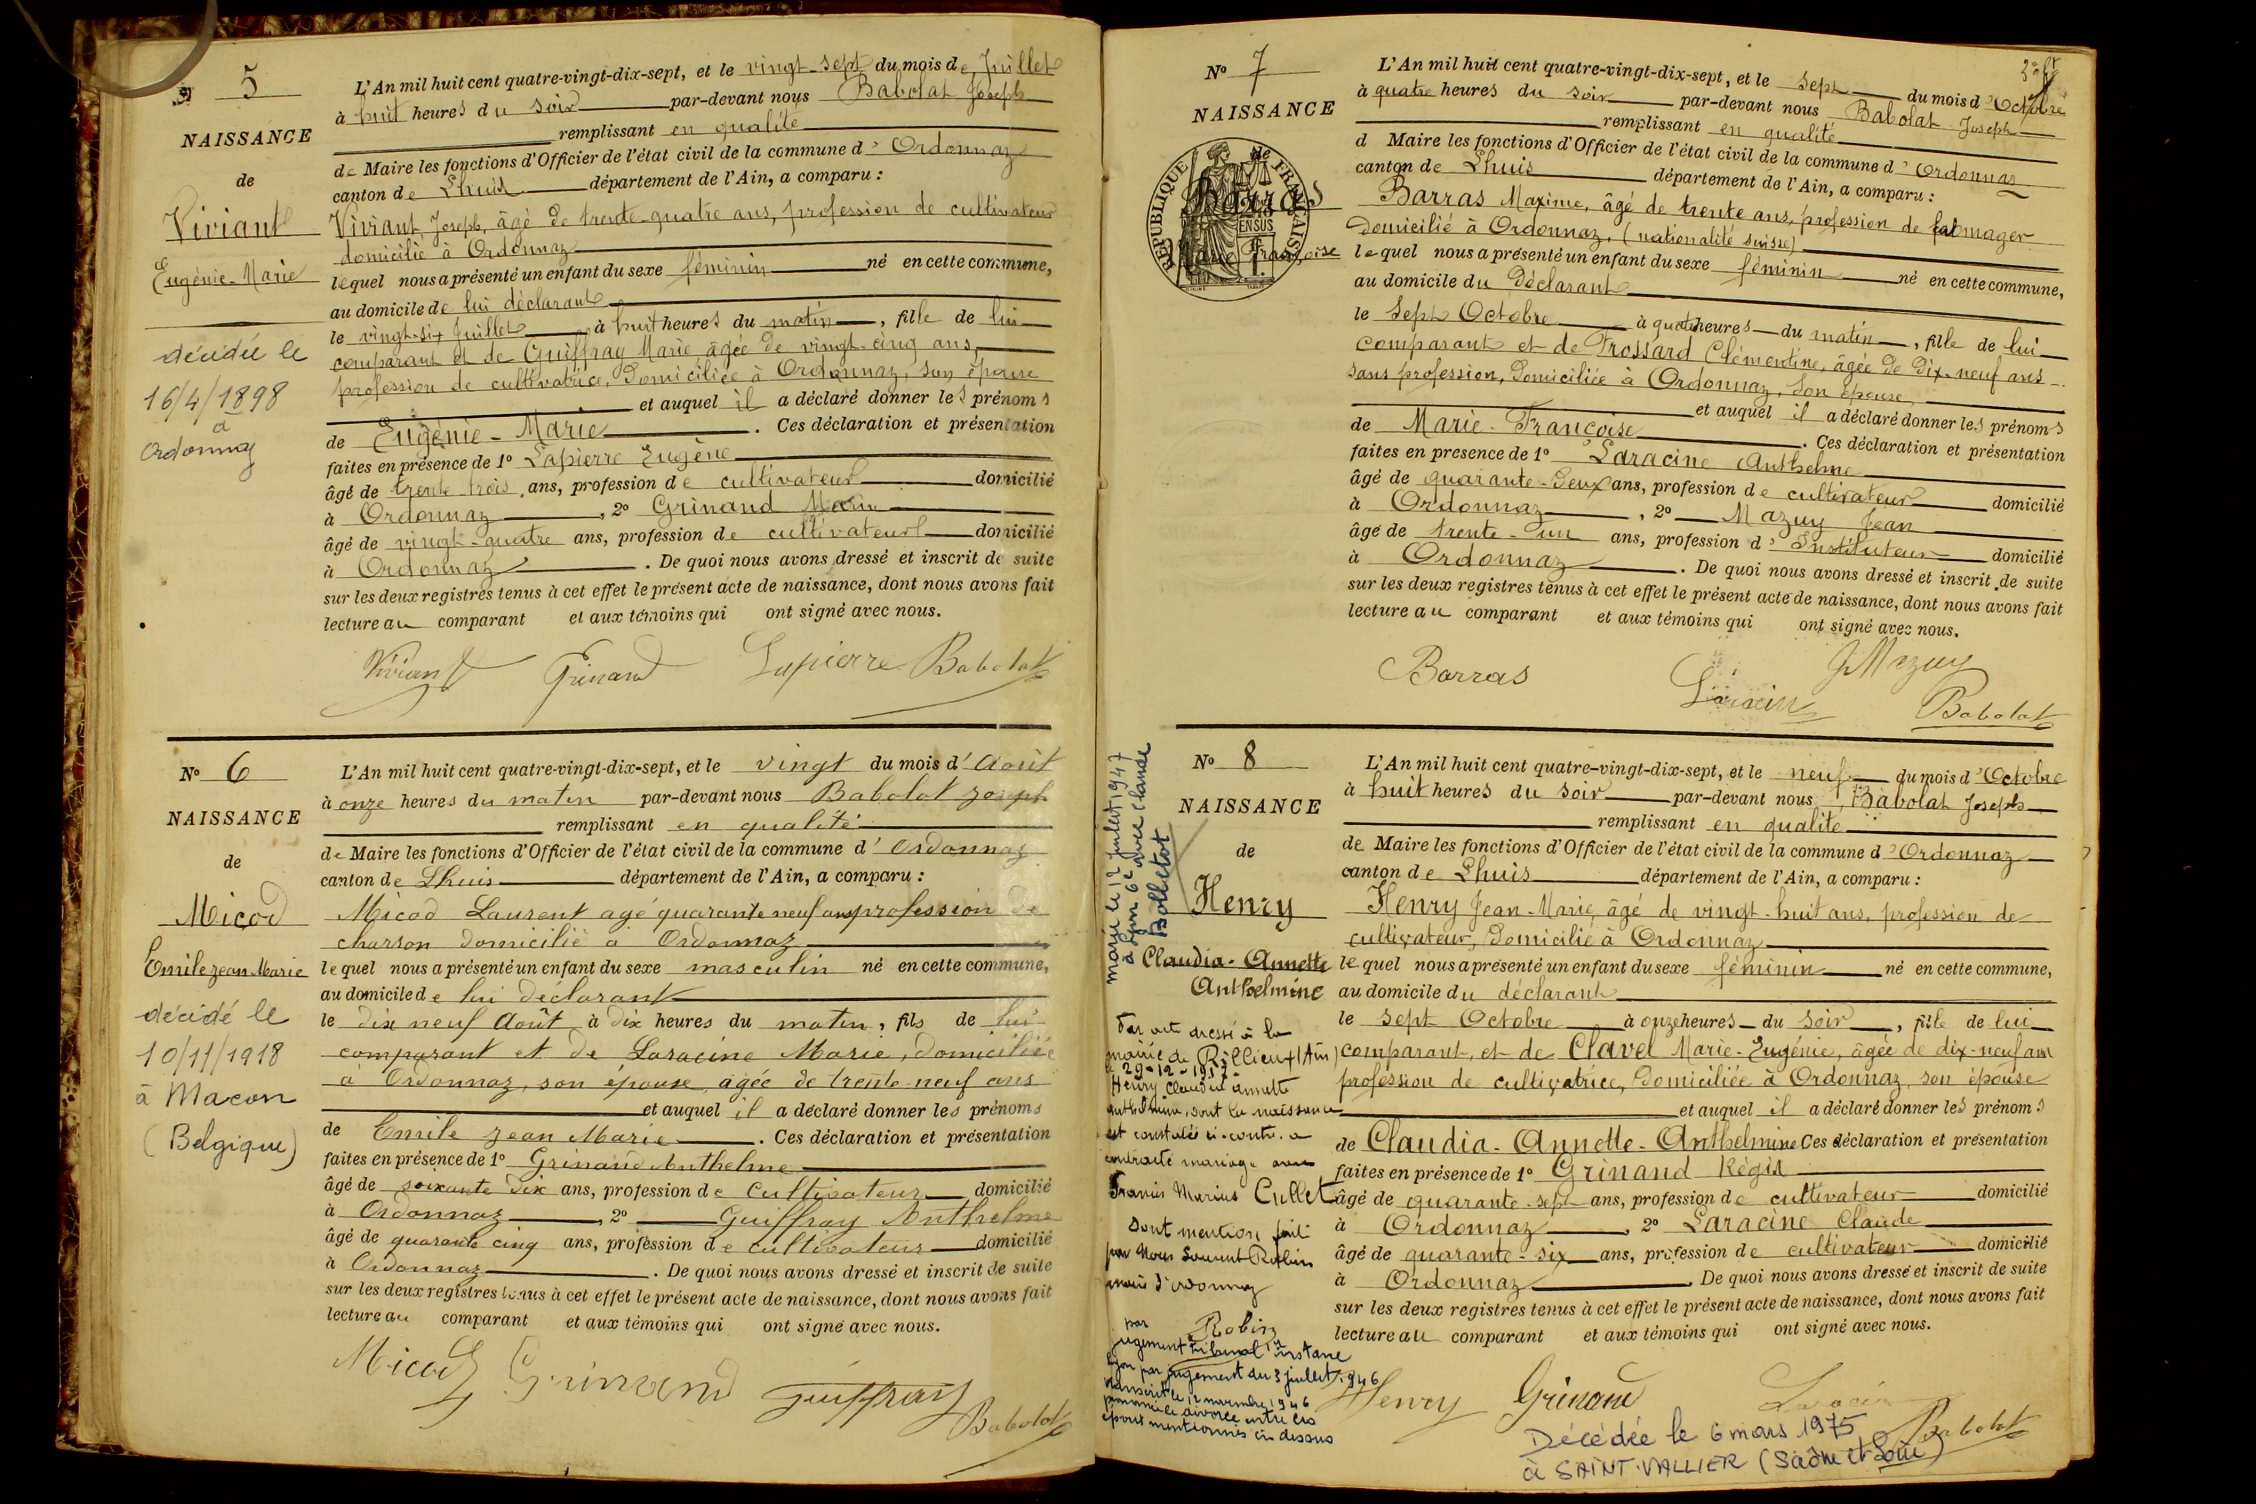 N° 5
NAISSANCE
de
Viviant
Eugénie-Marie
décédée le
16/4/1898
à
Ordonnaz
L'An mil huit cent quatre-vingt-dix-sept, et le vingt-sept du mois de Juillet
à huit heures du soir par-devant nous Babolat Joseph
remplissant en qualité
de Maire les fonctions d'Officier de l'état civil de la commune d'Ordonnaz
canton de Lhuis département de l'Ain, a comparu :
Viviant Joseph, âgé de trente-quatre ans, profession de cultivateur
domicilié à Ordonnaz
lequel nous a présenté un enfant du sexe féminin né en cette commune,
au domicile de lui déclarant
le vingt-six Juillet à huit heures du matin, fille de lui
comparant et de Guiffray Marie âgée de vingt-cinq ans,
profession de cultivatrice, domiciliée à Ordonnaz, son épouse
et auquel il a déclaré donner les prénoms
de Eugénie-Marie. Ces déclaration et présentation
faites en présence de 1° Lapierre Eugène
âgé de trente trois ans, profession de cultivateur domicilié
à Ordonnaz, 2° Grinand Marin
âgé de vingt-quatre ans, profession de cultivateur domicilié
à Ordonnaz. De quoi nous avons dressé et inscrit de suite
sur les deux registres tenus à cet effet le présent acte de naissance, dont nous avons fait
lecture au comparant et aux témoins qui ont signé avec nous.
Viviant Grinand Lapierre Babolat
N° 6
NAISSANCE
de
Micod
Emile Jean Marie
décédé le
10/11/1918
à Macon
(Belgique)
L'An mil huit cent quatre-vingt-dix-sept, et le vingt du mois d'Août
à onze heures du matin par-devant nous Babolat Joseph
remplissant en qualité
de Maire les fonctions d'Officier de l'état civil de la commune d'Ordonnaz
canton de Lhuis département de l'Ain, a comparu :
Micod Laurent agé quarante neuf ans profession de
charron domicilié à Ordonnaz
lequel nous a présenté un enfant du sexe masculin né en cette commune,
au domicile de lui déclarant
le dix neuf Août à dix heures du matin, fils de lui
comparant et de Laracine Marie, domiciliée
à Ordonnaz, son épouse agée de trente-neuf ans
et auquel il a déclaré donner les prénoms
de Emile Jean Marie. Ces déclaration et présentation
faites en présence de 1° Grinand Anthelme
âgé de soixante dix ans, profession de cultivateur domicilié
à Ordonnaz, 2° Guiffray Anthelme
âgé de quarante cinq ans, profession de cultivateur domicilié
à Ordonnaz. De quoi nous avons dressé et inscrit de suite
sur les deux registres tenus à cet effet le présent acte de naissance, dont nous avons fait
lecture au comparant et aux témoins qui ont signé avec nous.
Micod Grinand Guiffray
Babolat
N° 7
NAISSANCE
de
Barras
Marie Françoise
RÉPUBLIQUE FRANÇAISE
L'An mil huit cent quatre-vingt-dix-sept, et le sept du mois d'Octobre
à quatre heures du soir par-devant nous Babolat Joseph
remplissant en qualité
d Maire les fonctions d'Officier de l'état civil de la commune d'Ordonnaz
canton de Lhuis département de l'Ain, a comparu :
Barras Maxime, âgé de trente ans, profession de fromager
domicilié à Ordonnaz, (nationalité suisse)
lequel nous a présenté un enfant du sexe féminin né en cette commune,
au domicile du déclarant
le sept Octobre à quatre heures du matin, fille de lui
comparant et de Frossard Clémentine, âgée de dix-neuf ans
sans profession, domiciliée à Ordonnaz, son épouse,
et auquel il a déclaré donner les prénoms
de Marie-Françoise. Ces déclaration et présentation
faites en présence de 1° Laracine Anthelme
âgé de quarante-deux ans, profession de cultivateur domicilié
à Ordonnaz, 2° Mazuy Jean
âgé de trente-un ans, profession d'Instituteur domicilié
à Ordonnaz. De quoi nous avons dressé et inscrit de suite
sur les deux registres tenus à cet effet le présent acte de naissance, dont nous avons fait
lecture au comparant et aux témoins qui ont signé avec nous.
Barras Laracine J Mazuy
Babolat
N° 8
NAISSANCE
de
Henry
Claudia-Annette
Anthelmine
marié le 12 juillet 1947
à Lyon 6e avec Claude
Bolletot
Par acte dressé à la
mairie de Rillieux (Ain)
Henry Claudia Annette
Anthelmine, dont la naissance
est constatée ci-contre a
contracté mariage avec
Francis Marius Cullet
dont mention fait
par Nous Laurent Robin
maire d'Ordonnaz
Robin
par
jugement tribunal 1re instance
Lyon par jugement du 3 juillet 1946
transcrit le 12 novembre 1946
prononcé divorce entre les
époux mentionnés ci dessus
L'An mil huit cent quatre-vingt-dix-sept, et le neuf du mois d'Octobre
à huit heures du soir par-devant nous Babolat Joseph
remplissant en qualité
de Maire les fonctions d'Officier de l'état civil de la commune d'Ordonnaz
canton de Lhuis département de l'Ain, a comparu :
Henry Jean-Marie, âgé de vingt-huit ans, profession de
cultivateur, domicilié à Ordonnaz
lequel nous a présenté un enfant du sexe féminin né en cette commune,
au domicile du déclarant
le sept Octobre à onze heures du soir, fille de lui
comparant, et de Clavel Marie-Eugénie, âgée de dix-neuf ans
profession de cultivatrice, domiciliée à Ordonnaz, son épouse
et auquel il a déclaré donner les prénoms
de Claudia-Annette-Anthelmine Ces déclaration et présentation
faites en présence de 1° Grinand Régis
âgé de quarante-sept ans, profession de cultivateur domicilié
à Ordonnaz, 2° Laracine Claude
âgé de quarante-six ans, profession de cultivateur domicilié
à Ordonnaz. De quoi nous avons dressé et inscrit de suite
sur les deux registres tenus à cet effet le présent acte de naissance, dont nous avons fait
lecture au comparant et aux témoins qui ont signé avec nous.
Henry Grinand Laracine
Babolat
Décédée le 6 mars 1975
à SAINT-VALLIER (Saône et Loire)